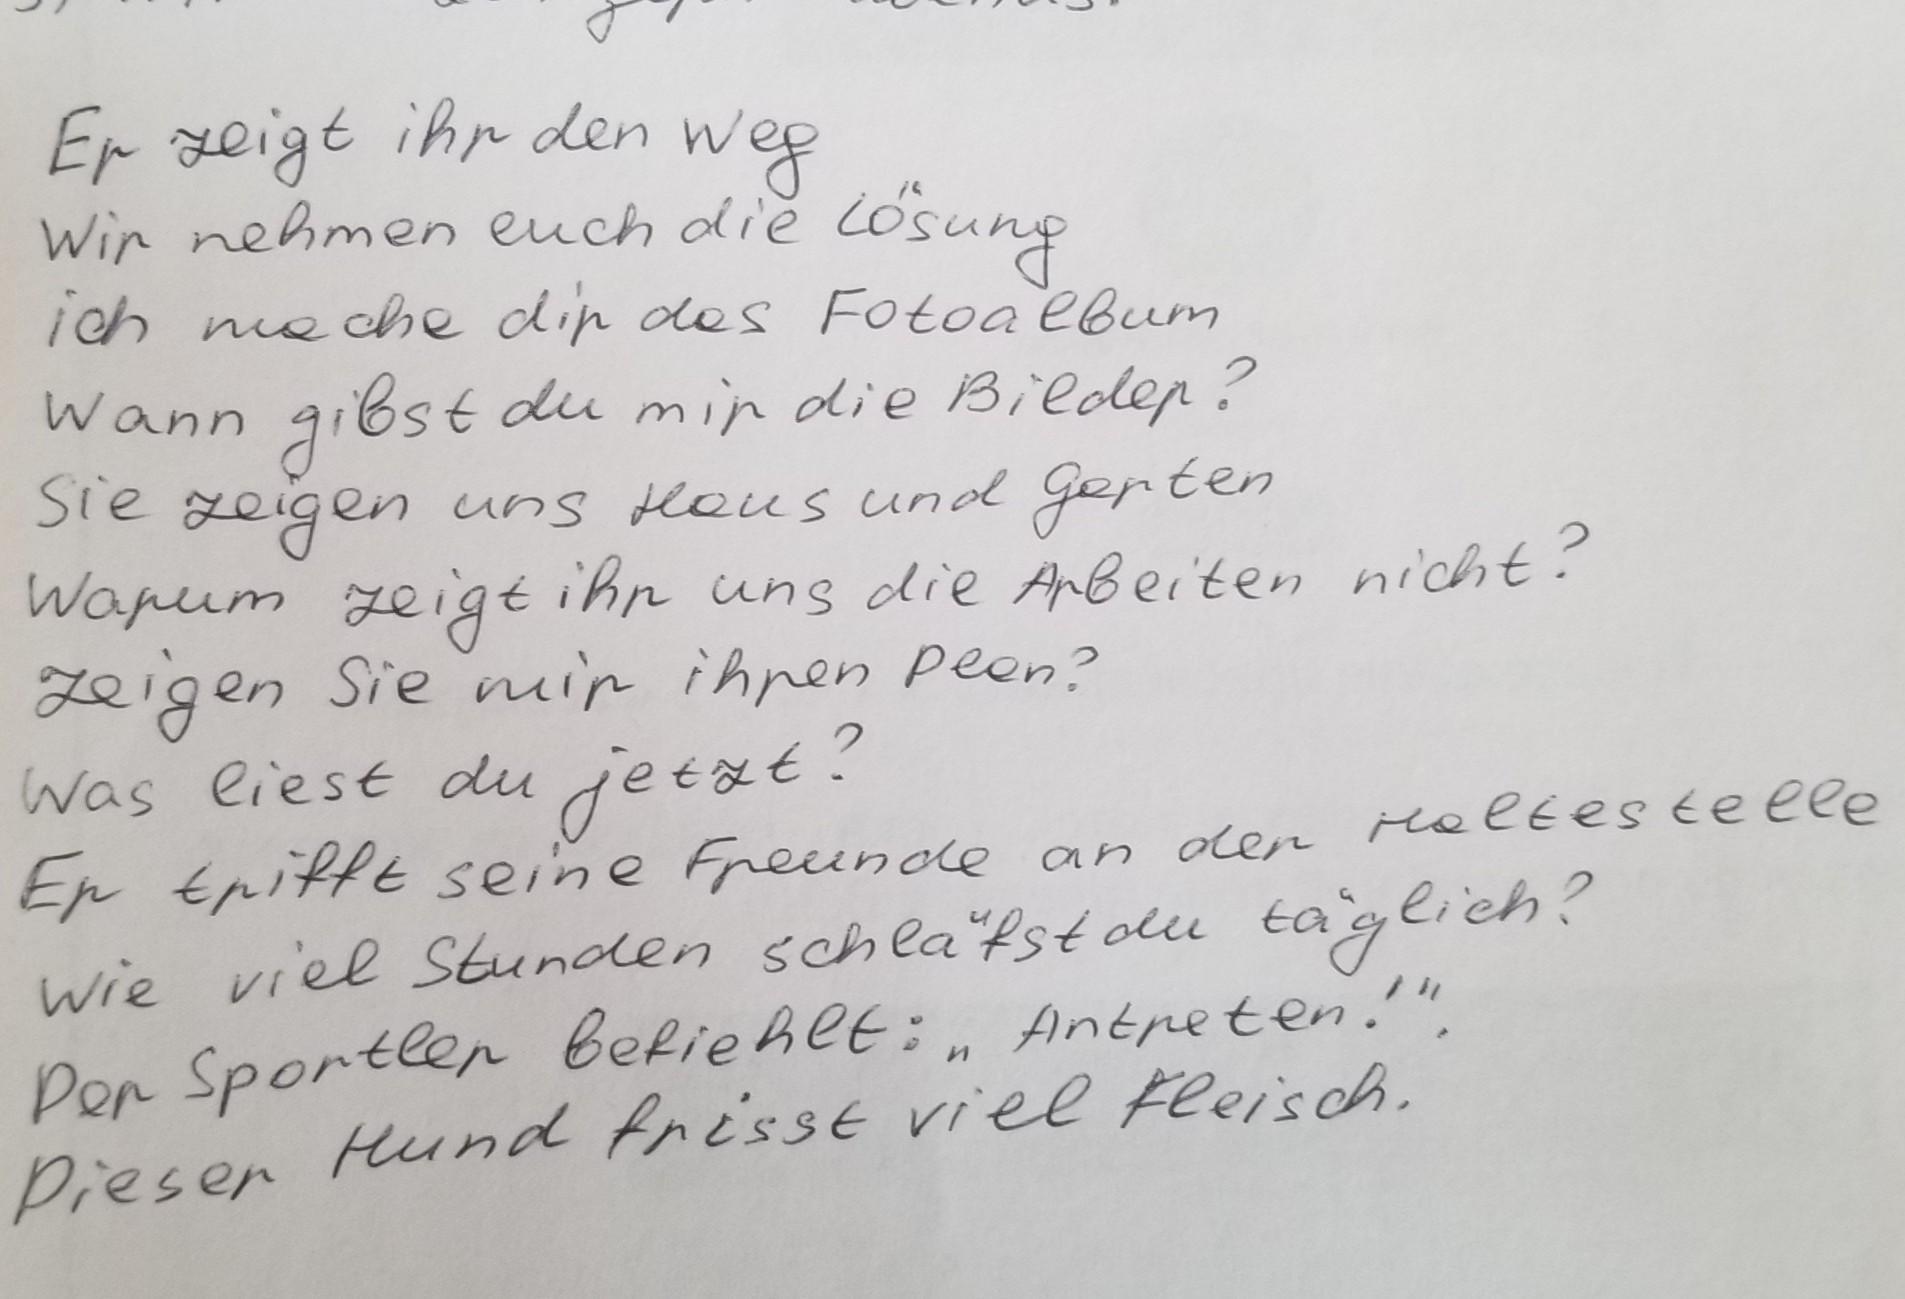 Er zeigt ihr den Weg
Wir nehmen euch die Lösung
ich mache dir das Fotoalbum
Wann gibst du mir die Bilder?
Sie zeigen uns Haus und Garten
Warum zeigt ihr uns die Arbeiten nicht?
Zeigen Sie mir ihren Plan?
Was liest du jetzt?
Er trifft seine Freunde an der Haltestelle
Wie viel Stunden schläfst du täglich?
Der Sportler befiehlt: „Antreten!“.
Dieser Hund frisst viel Fleisch.